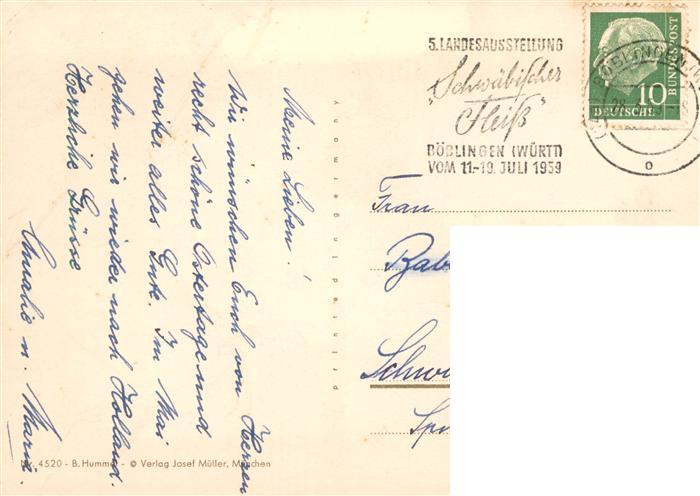 Meine Lieben!
Wir wünschen Euch von Herzen
recht schöne Ostertage und
weiter alles Gute. Im Mai
gehen wir wieder nach Holland.
Herzliche Grüsse
Amalie u. Marie.
Nr. 4520 - B. Hummel - © Verlag Josef Müller, München
printed in germany
5. LANDESAUSSTELLUNG
"Schwäbischer
Fleiß"
BÖBLINGEN (WÜRTT)
VOM 11.-19. JULI 1959
BÖBLINGEN
28
DEUTSCHE
BUNDESPOST
10
Frau